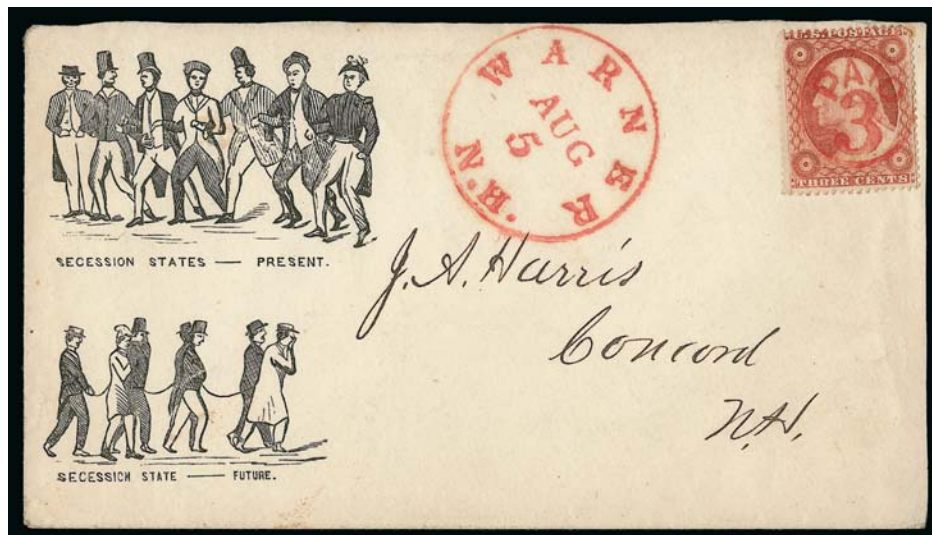 SECESSION STATES — PRESENT.
SECESSION STATE — FUTURE.
WARNER N.H.
AUG
5
U.S. POSTAGE.
PAID
3
THREE CENTS
J. A. Harris
Concord
N.H.